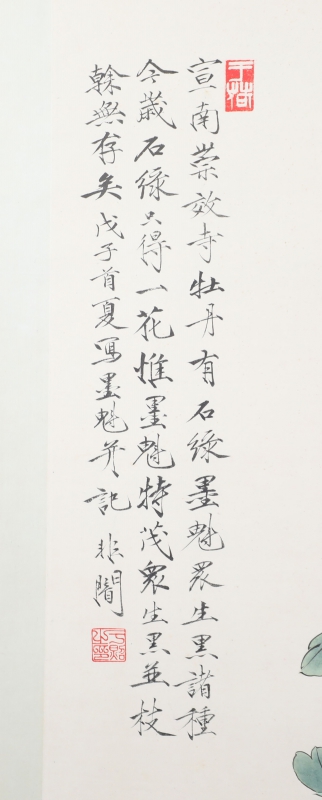 宣南崇效寺牡丹有石綠墨魁衆生黑諸種
今歲石綠只得一花惟墨魁特茂衆生黑並枝
榦無存矣戊子首夏寫墨魁并記 非闇